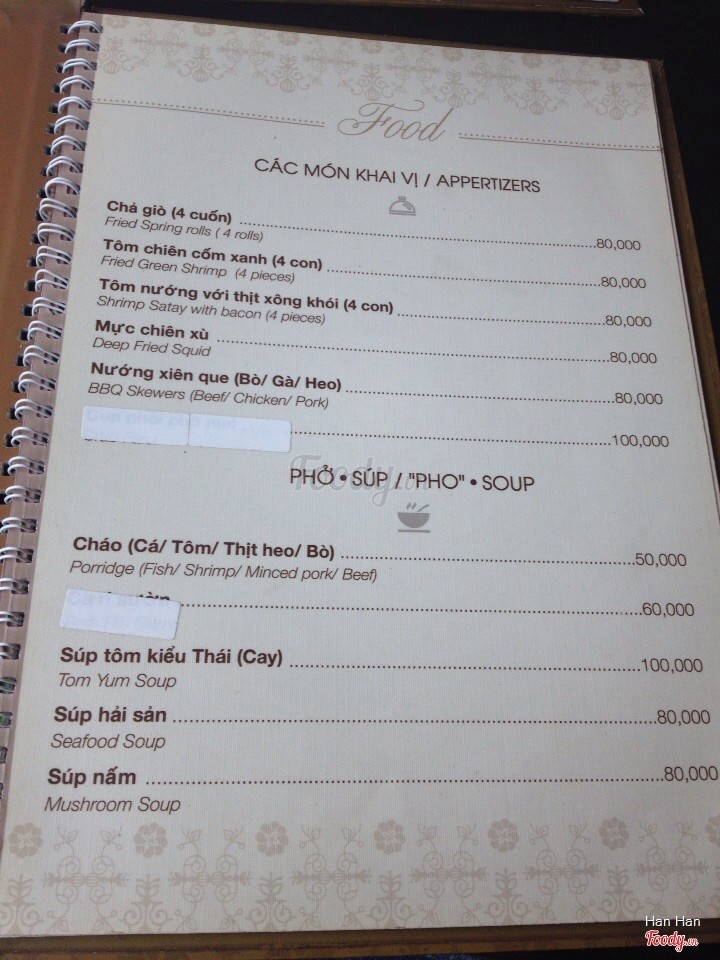 Food
CÁC MÓN KHAI VỊ / APPERTIZERS
Chả giò (4 cuốn) 80,000
Fried Spring rolls ( 4 rolls)
Tôm chiên cốm xanh (4 con) 80,000
Fried Green Shrimp (4 pieces)
Tôm nướng với thịt xông khói (4 con) 80,000
Shrimp Satay with bacon (4 pieces)
Mực chiên xù 80,000
Deep Fried Squid
Nướng xiên que (Bò/ Gà/ Heo) 80,000
BBQ Skewers (Beef/ Chicken/ Pork)
100,000
Foody.vn
PHỞ • SÚP / "PHO" • SOUP
Cháo (Cá/ Tôm/ Thịt heo/ Bò) 50,000
Porridge (Fish/ Shrimp/ Minced pork/ Beef)
60,000
Súp tôm kiểu Thái (Cay) 100,000
Tom Yum Soup
Súp hải sản 80,000
Seafood Soup
Súp nấm 80,000
Mushroom Soup
Han Han
Foody.vn